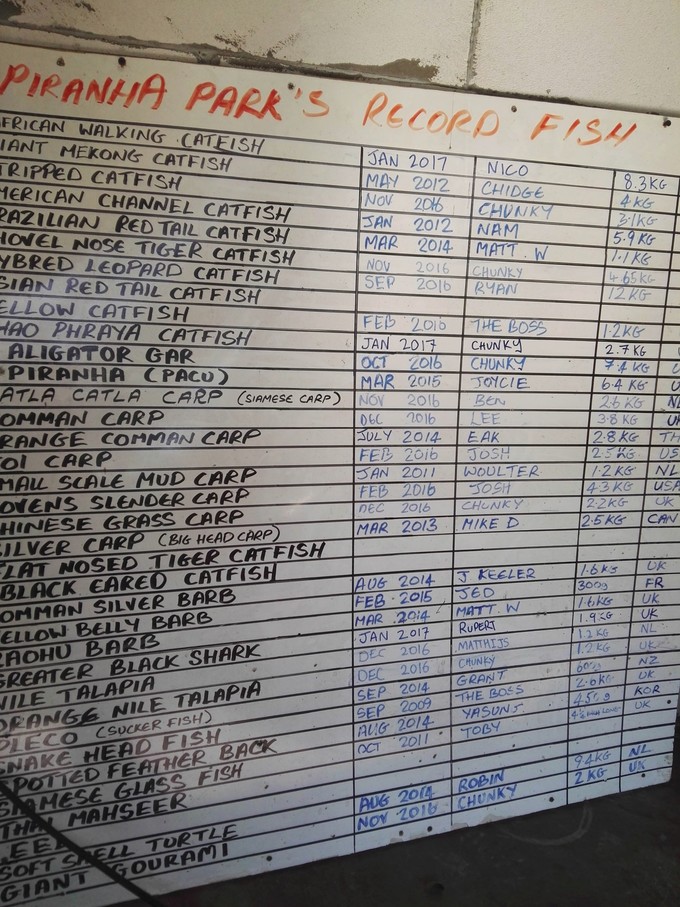 PIRANHA PARK'S RECORD FISH
FRICAN WALKING CATFISH JAN 2017 NICO 8.3KG
IANT MEKONG CATFISH MAY 2012 CHIDGE 4KG
TRIPPED CATFISH NOV 2016 CHUNKY 3.1KG
MERICAN CHANNEL CATFISH JAN 2012 NAM 5.9KG
RAZILIAN RED TAIL CATFISH MAR 2014 MATT.W 1.1KG
HOVEL NOSE TIGER CATFISH NOV 2016 CHUNKY 4.65KG
YBRED LEOPARD CATFISH SEP 2016 RYAN 12KG
SIAN RED TAIL CATFISH
ELLOW CATFISH FEB 2016 THE BOSS 1.2KG
HAO PHRAYA CATFISH JAN 2017 CHUNKY 2.7KG
ALIGATOR GAR OCT 2016 CHUNKY 7.4KG
PIRANHA (PACU) MAR 2015 JOYCIE 6.4KG
ATLA CATLA CARP (SIAMESE CARP) NOV 2016 BEN 2.6KG NL
OMMAN CARP DEC 2016 LEE 3.8KG UK
RANGE COMMAN CARP JULY 2014 EAK 2.8KG TH
OI CARP FEB 2016 JOSH 2.5KG US
MALL SCALE MUD CARP JAN 2011 WOULTER 1.2KG NL
OVENS SLENDER CARP FEB 2016 JOSH 4.3KG USA
HINESE GRASS CARP DEC 2016 CHUNKY 2.2KG UK
ILVER CARP (BIG HEAD CARP) MAR 2013 MIKE D 2.5KG CAN
LAT NOSED TIGER CATFISH
BLACK EARED CATFISH
OMMAN SILVER BARB AUG 2014 J KEELER 1.6KG UK
ELLOW BELLY BARB FEB 2015 JED 300g FR
RAOHU BARB MAR 2014 MATT.W 1.6KG UK
GREATER BLACK SHARK JAN 2017 RUPERT 1.9KG UK
NILE TALAPIA DEC 2016 MATTHIJS 1.2KG NL
ORANGE NILE TALAPIA DEC 2016 CHUNKY 1.2KG UK
PLECO (SUCKER FISH) SEP 2014 GRANT 600g NZ
SNAKE HEAD FISH SEP 2009 THE BOSS 2.0KG UK
SPOTTED FEATHER BACK AUG 2014 YASUNJ 450g KOR
SIAMESE GLASS FISH OCT 2011 TOBY UK
THAI MAHSEER
EEL
SOFT SHELL TURTLE AUG 2014 ROBIN 9.4KG NL
GIANT GOURAMI NOV 2016 CHUNKY 2KG UK